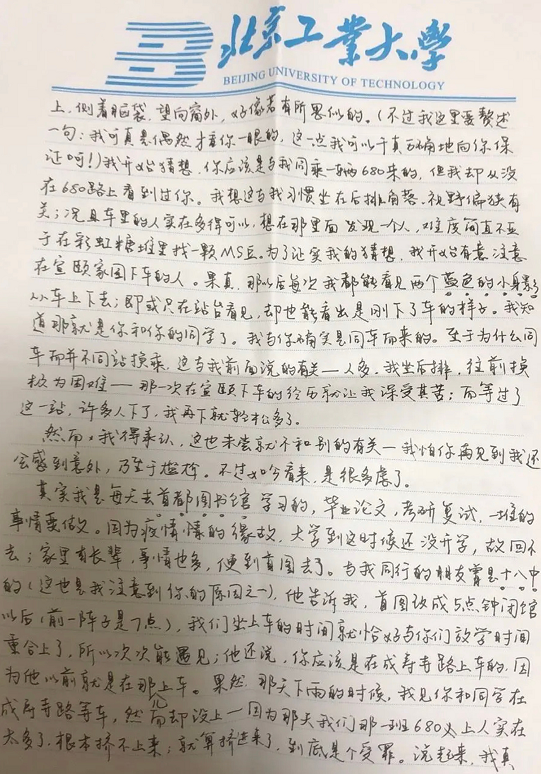 北京工业大学
BEIJING UNIVERSITY OF TECHNOLOGY
上，侧着脑袋，望向窗外，好像若有所思似的。（不过我这里要赘述
一句：我可真是偶然才看你一眼的，这一点我可以千真万确地向你保
证呵！）我开始猜想，你应该是与我同乘一辆680来的，但我却从没
在680路上看到过你。我想这与我习惯坐在后排角落，视野偏狭有
关；况且车里的人实在多得可以，想在那里面发现一个人，难度简直不亚
于在彩虹糖堆里找一颗MS豆。为了证实我的猜想，我开始有意注意
在宣颐家园下车的人。果真，那以后每次我都能看见两个蓝色的小身影
从车上下去；即或只在站台看见，却也能看出是刚下了车的样子。我知
道那就是你和你的同学了。我与你确实是同车而来的。至于为什么同
车而并不同站换乘，这与我前面说的有关——人多，我坐后排，往前换
较为困难——那一次在宣颐下车的经历就让我深受其苦；而等过了
这一站，许多人下了，我再下就轻松多了。
然而，我得承认，这也未尝就不和别的有关——我怕你再见到我还
会感到意外，乃至于尴尬。不过如今看来，是很多虑了。
其实我是每天去首都图书馆学习的，毕业论文，考研复试，一堆的
事情要做。因为疫情的缘故，大学到这时候还没开学，故回不
去；家里有长辈，事情也多，便到首图去了。与我同行的朋友曾是十八中
的（这也是我注意到你的原因之一），他告诉我，首图改成5点钟闭馆
以后（前一阵子是7点），我们坐上车的时间就恰好与你们放学时间
重合上了，所以次次能遇见；他还说，你应该是在成寿寺路上车的，因
为他以前就是在那上车。果然，那天下雨的时候，我见你和同学在
成寿寺路等车，然而却没上——因为那天我们那一班680上人实在
太多了，根本挤不上来，就算挤进来了，到底是个受罪。说起来，我真